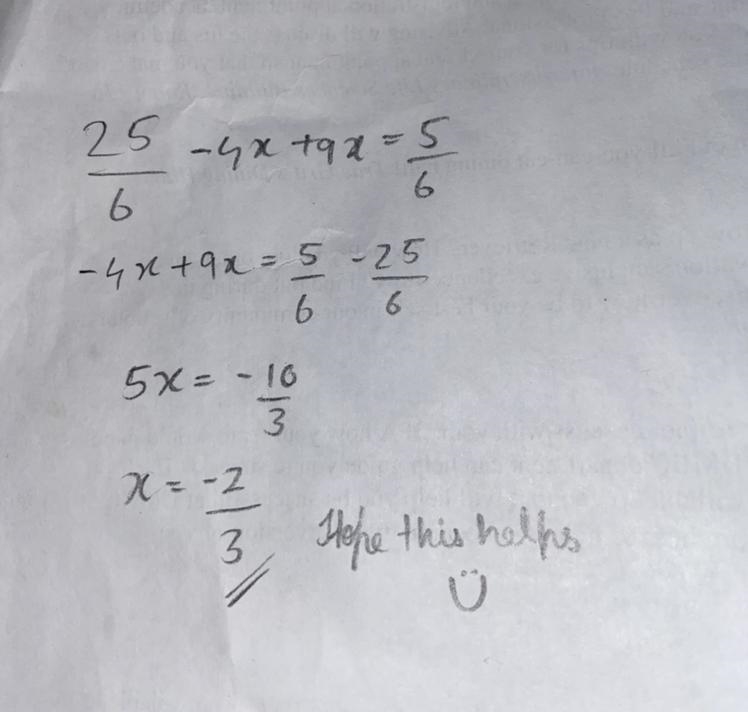 25/6 -4x +9x = 5/6
-4x+9x = 5/6 - 25/6
5x = -10/3
x = -2/3
Hope this helps